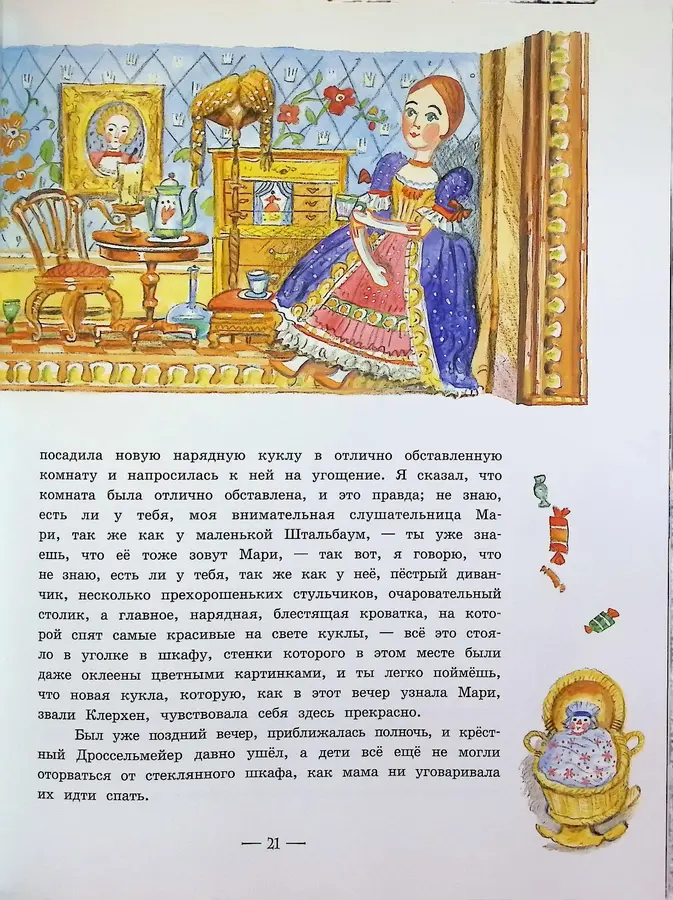 посадила новую нарядную куклу в отлично обставленную
комнату и напросилась к ней на угощение. Я сказал, что
комната была отлично обставлена, и это правда; не знаю,
есть ли у тебя, моя внимательная слушательница Ма-
ри, так же как у маленькой Штальбаум, — ты уже зна-
ешь, что её тоже зовут Мари, — так вот, я говорю, что
не знаю, есть ли у тебя, так же как у неё, пёстрый диван-
чик, несколько прехорошеньких стульчиков, очаровательный
столик, а главное, нарядная, блестящая кроватка, на кото-
рой спят самые красивые на свете куклы, — всё это стоя-
ло в уголке в шкафу, стенки которого в этом месте были
даже оклеены цветными картинками, и ты легко поймёшь,
что новая кукла, которую, как в этот вечер узнала Мари,
звали Клерхен, чувствовала себя здесь прекрасно.
Был уже поздний вечер, приближалась полночь, и крёст-
ный Дроссельмейер давно ушёл, а дети всё ещё не могли
оторваться от стеклянного шкафа, как мама ни уговаривала
их идти спать.
— 21 —